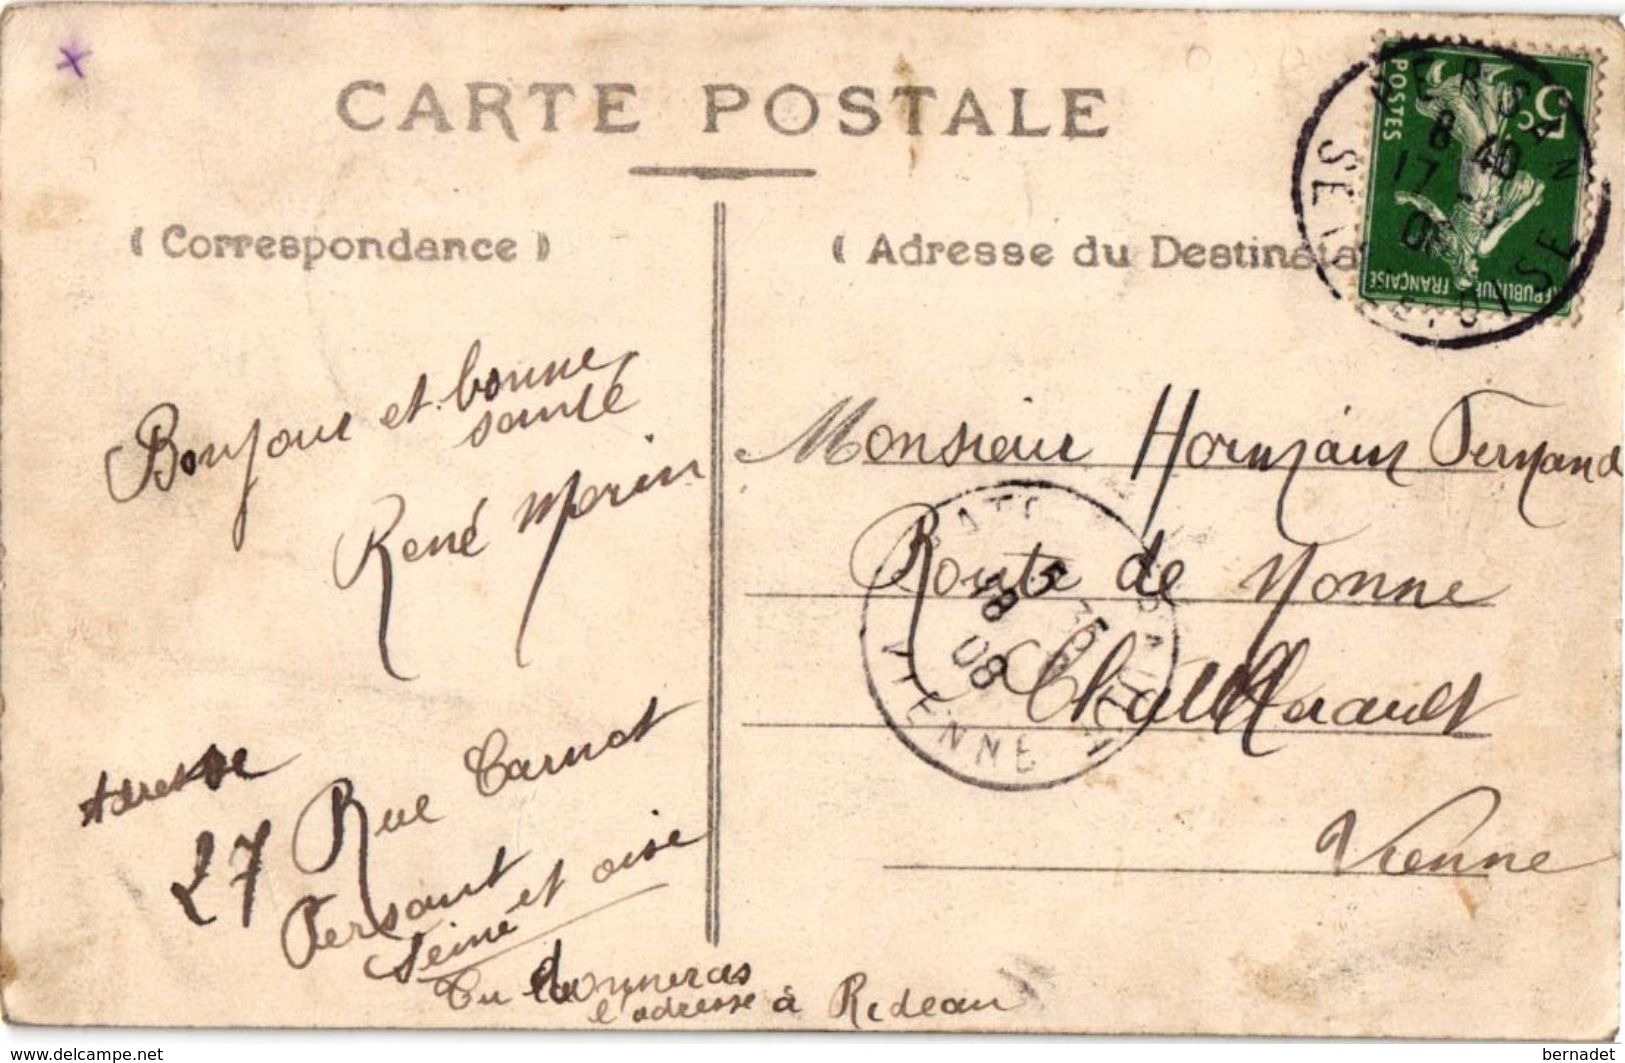 CARTE POSTALE
( Correspondance )
( Adresse du Destinata
POSTES
5c
REPUBLIQUE FRANÇAISE
PERSAN
8 40
17
08
SEINE-ET-OISE
Bonjour et bonne
santé
René Morin
Adresse
27 Rue Carnot
Persant
Seine et oise
Tu donneras
l'adresse à Rideau
Monsieur Fernand
Route de Nonne
Châtellerault
Vienne
VIENNE
18
08
www.delcampe.net
bernadet